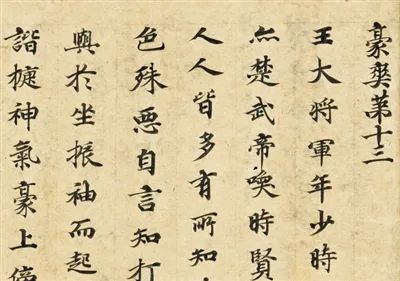 豪爽苐十三
王大將軍年少時
亦楚武帝喚時賢
人人皆多有所知
色殊惡自言知打
興於坐振袖而起
諧捷神氣豪上傍